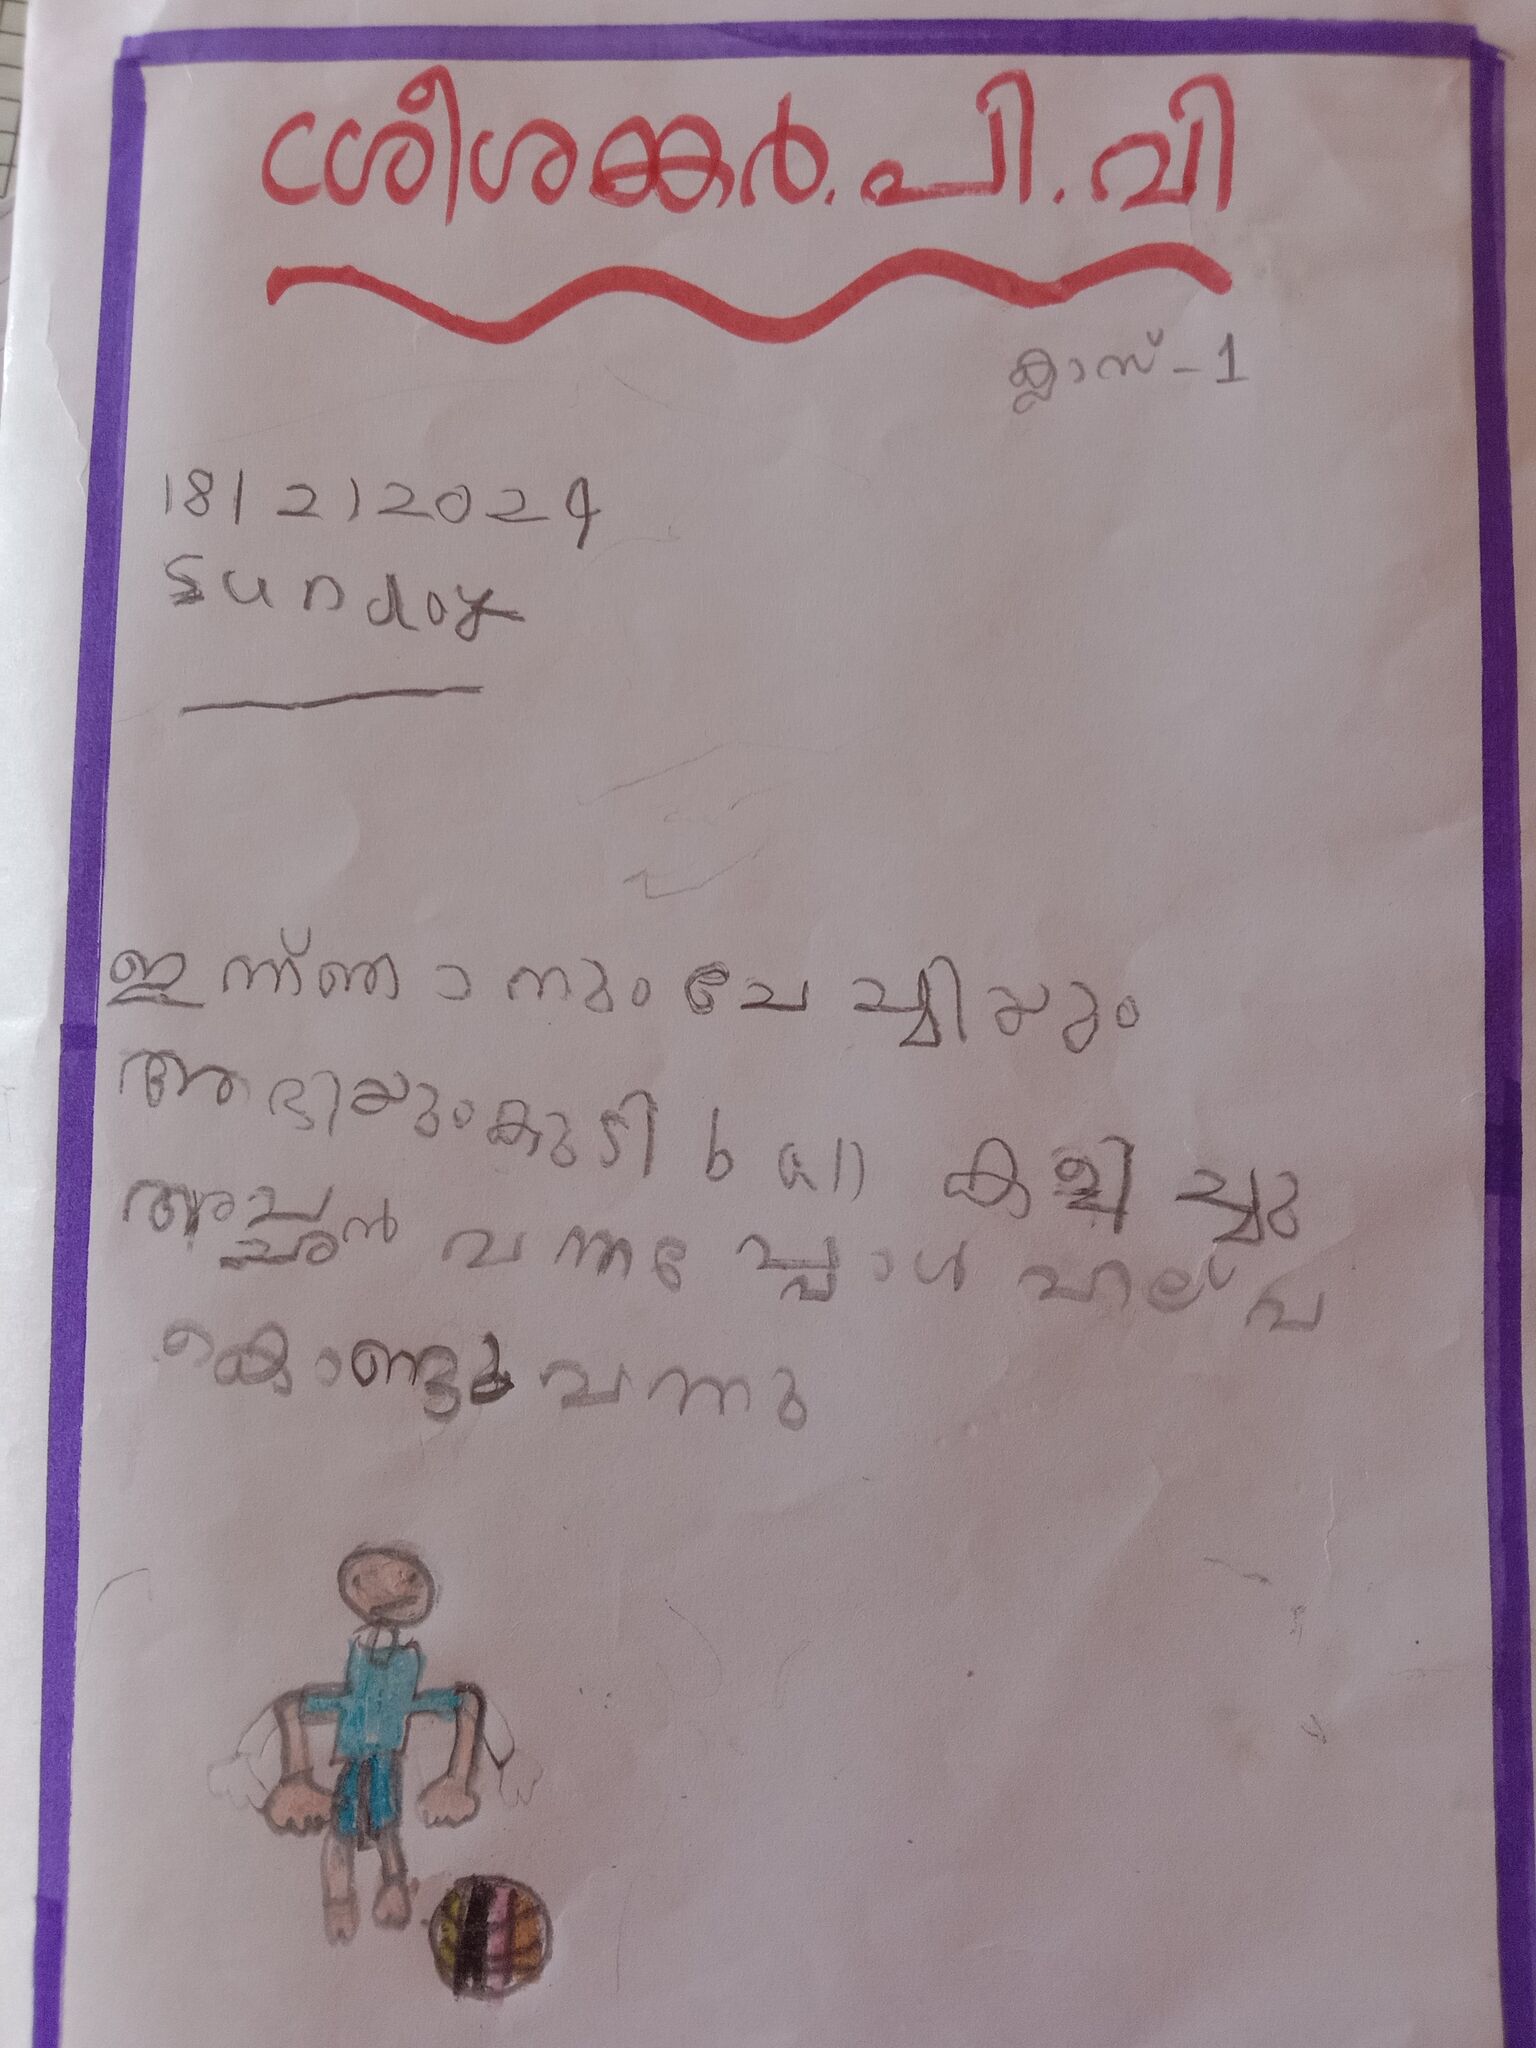 ശ്രീശങ്കർ.പി.വി
ക്ലാസ്-1
18/2/2024
Sunday
ഇന്ന്ഞാനുംചേച്ചിയും
അഭിയുംകുടി ball കളിച്ചു
അച്ഛൻ വന്നപ്പോൾ
കൊണ്ടുവന്നു